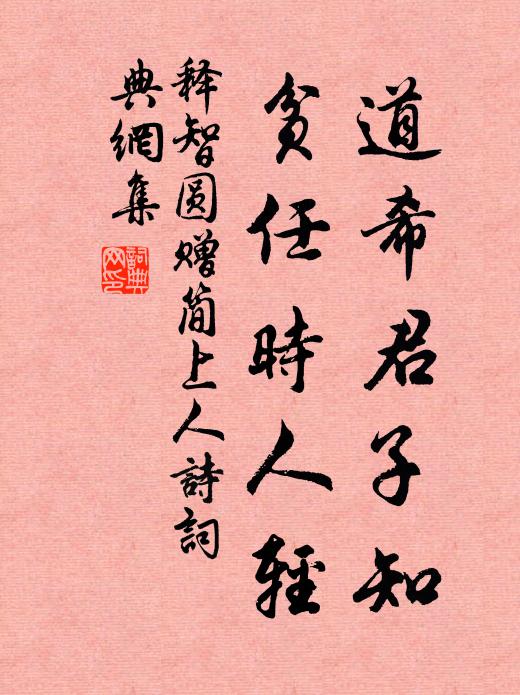 道希君子知
貧任時人輕
释智圆赠简上人詩詞
典網集
詞典
网印